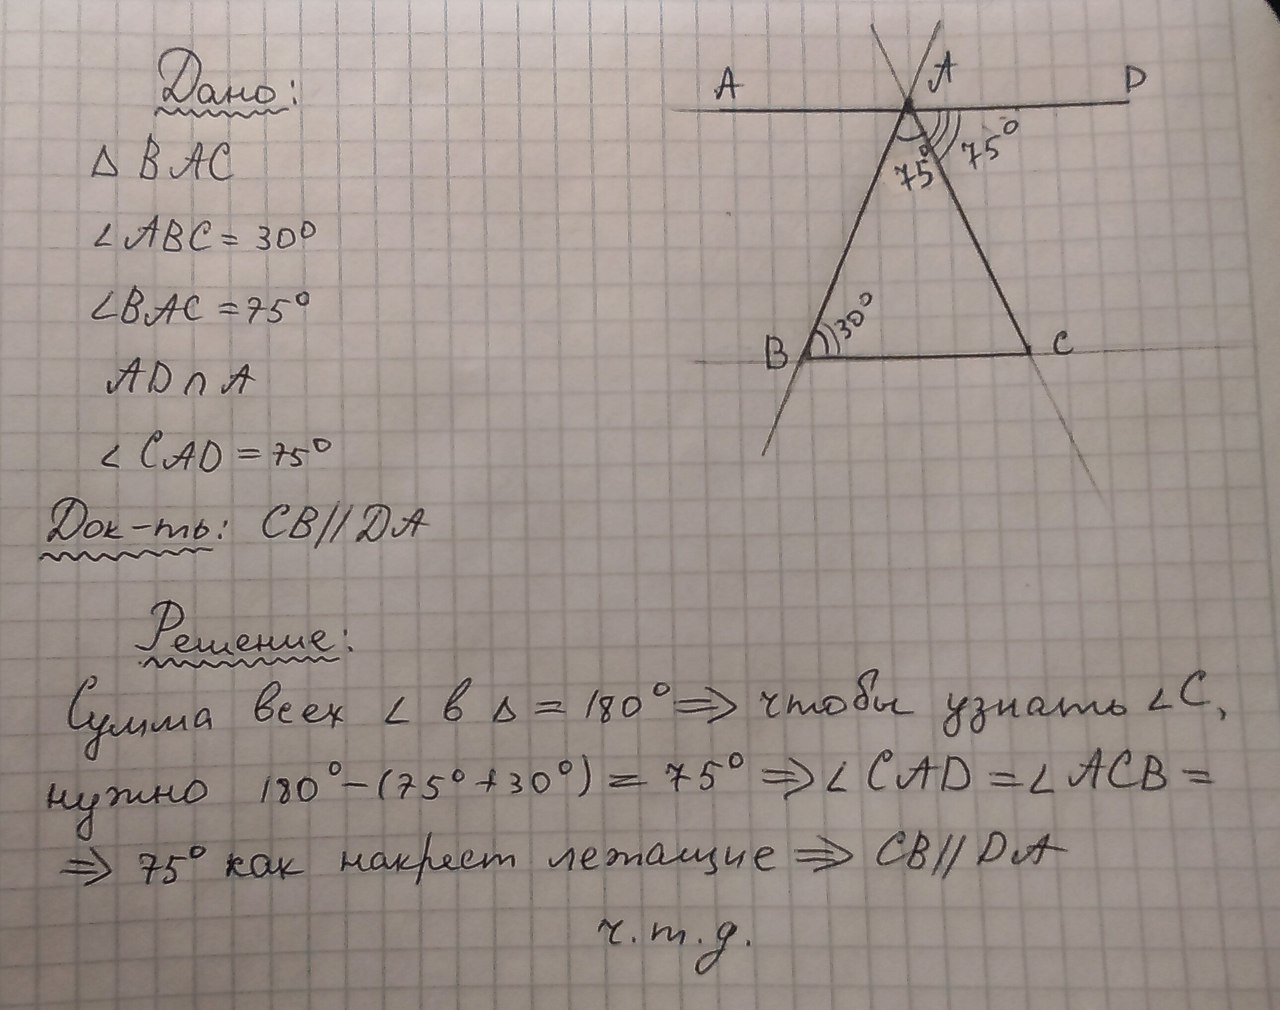 Дано:
Δ BAC
∠ABC = 30°
∠BAC = 75°
AD ∩ A
∠ CAD = 75°
Док-ть: CB//DA
A
A
D
75°
75°
B
30°
C
Решение:
Сумма всех ∠ в Δ = 180° ⇒ чтобы узнать ∠C,
нужно 180° - (75° + 30°) = 75° ⇒ ∠ CAD = ∠ ACB =
⇒ 75° как накрест лежащие ⇒ CB//DA
ч.т.д.